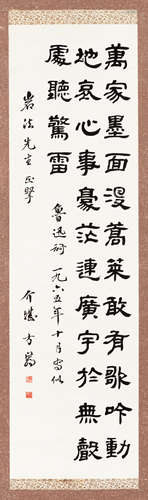 萬家墨面沒蒿萊敢有歌吟動
地哀心事豪茫連廣宇於無聲
處聽驚雷
魯迅詩 一九六五年十月書似
岩法先生正擘
介堪方岩